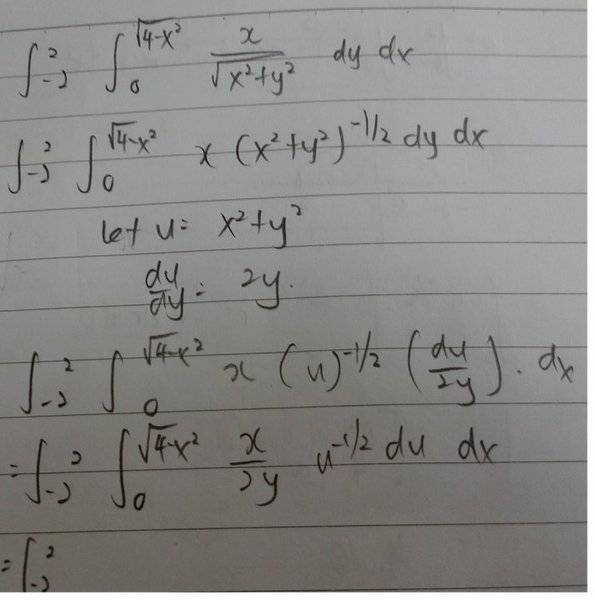 ∫_{-2}^{2} ∫_{0}^{√(4-x²)} x/√(x²+y²) dy dx
∫_{-2}^{2} ∫_{0}^{√(4-x²)} x (x²+y²)^{-1/2} dy dx
let u = x²+y²
du/dy = 2y.
∫_{-2}^{2} ∫_{0}^{√(4-x²)} x (u)^{-1/2} (du/2y) . dx
= ∫_{-2}^{2} ∫_{0}^{√(4-x²)} x/2y u^{-1/2} du dx
= ∫_{-2}^{2}